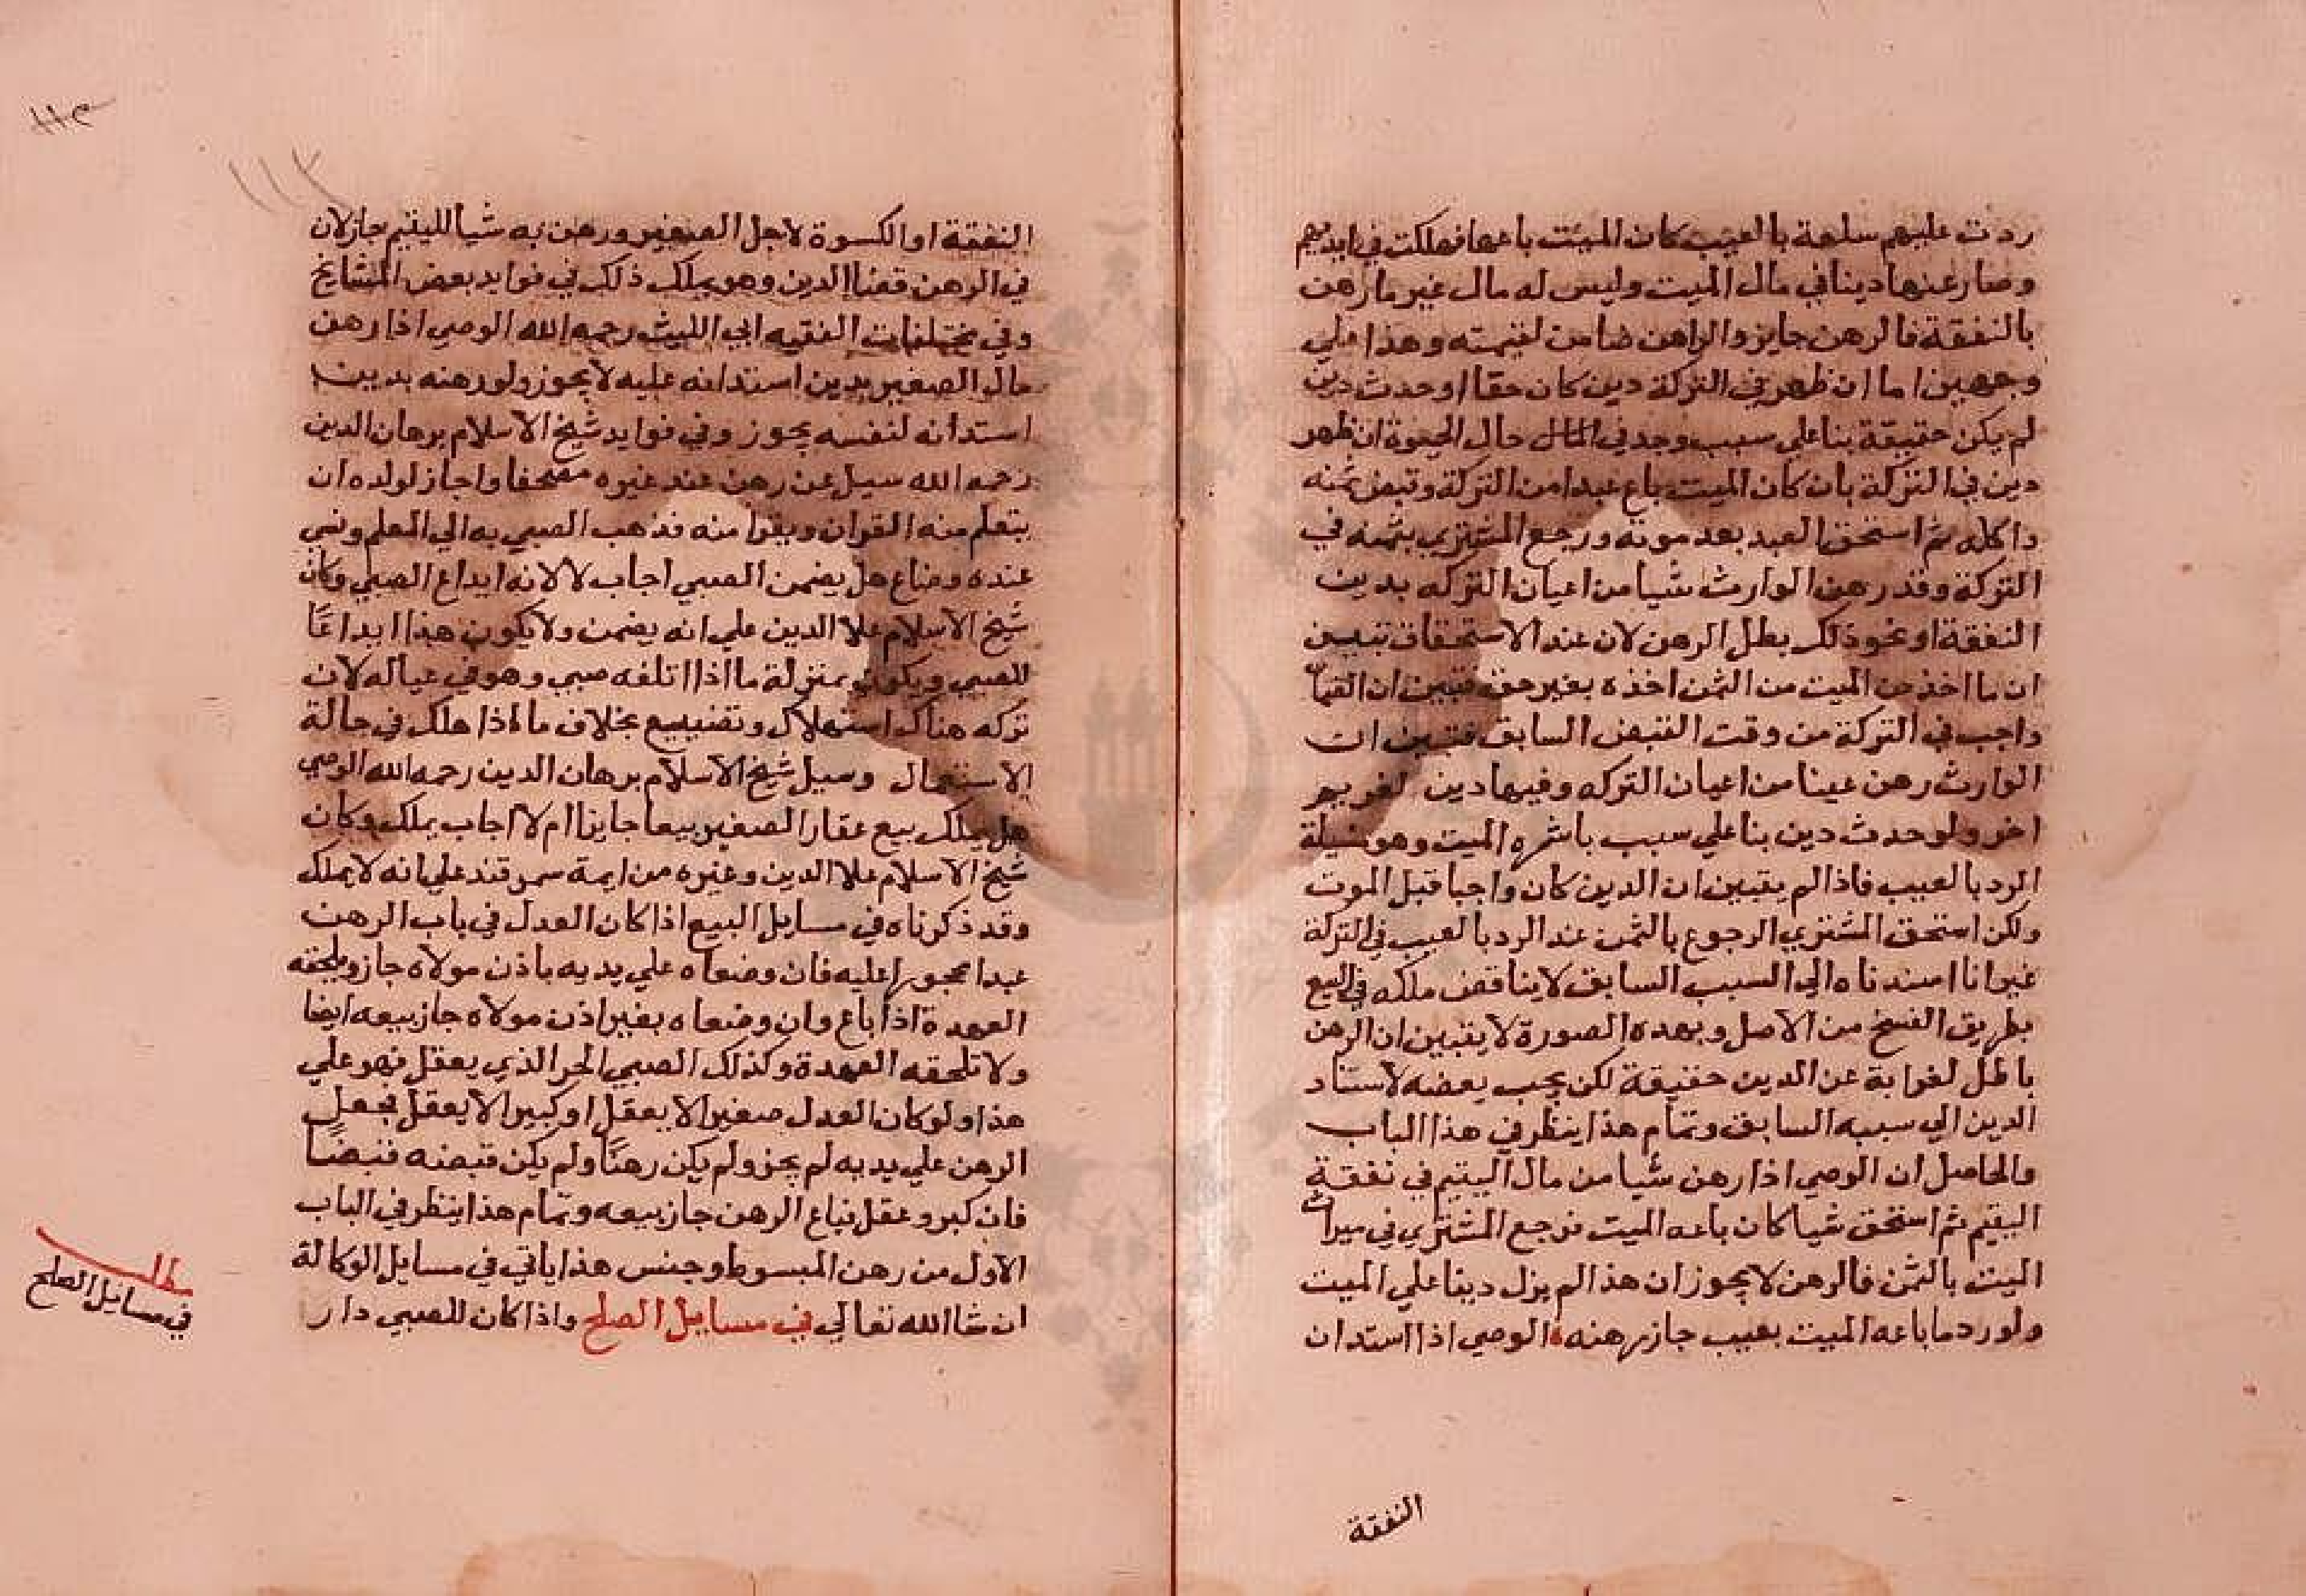 ردت عليهم سلعة بالعيب كان الميت باعها فهلكت في ايديهم
وصار عنها دينا في مال الميت وليس له مال غير ما رهن
بالنفقة فالرهن جايز والراهن ضامن لقيمته وهذا علي
وجهين اما ان ظهر في التركة دين كان حقا او حدث دين
لم يكن حقيقة بنا علي سبب وجد في المال حال الحيوة ان ظهر
دين في التركة بان كان الميت باع عبدا من التركة وقبض ثمنه
داكله ثم استحق العبد بعد موته ورجع المشتري بثمنه في
التركة وقد رهن الوارث شيا من اعيان التركه بدين
النفقة او نحو ذلك بطل الرهن لان عند الاستحقاق تبين
ان ما اخذ من الميت من الثمن اخذه بغير حق فتبين ان
واجب في التركة من وقت القبض السابق فتبين ان
الوارث رهن عينا من اعيان التركه وفيها دين لغريم
اخر ولو حدث دين بنا علي سبب باشره الميت وهو مسيلة
الرد بالعيب فاذا لم يتبين ان الدين كان واجبا قبل الموت
ولكن استحق المشتري الرجوع بالثمن عند الرد بالعيب في التركة
غير انا اسندناه الي السبب السابق لا يناقض ملكه في البيع
بطريق الفسخ من الاصل وبهده الصورة لا يتبين ان الرهن
باطل لغرابة عن الدين حقيقة لكن يجب بعضه لاستناد
الدين الي سببه السابق وتمام هذا ينظر في هذا الباب
والحاصل ان الوصي اذا رهن شيا من مال اليتيم في نفقة
اليتيم ثم استحق شيا كان باعه الميت فرجع المشتري في ميراث
الميت بالثمن فالرهن لا يجوز ان هذا لم يزل دينا علي الميت
ولو رد ما باعه الميت بعيب جاز رهنه الوصي اذا استدان
النفقة
١١٣
١١٢
النفقة او الكسوة لاجل الصغير ورهن به شيا لليتيم جاز لان
في الرهن قضا الدين وهو يملك ذلك في فوايد بعض المشايخ
وفي مختلفات الفقيه ابي الليث رحمه الله الوصي اذا رهن
مال الصغير بدين استدانه عليه لا يجوز ولو رهنه بدين
استدانه لنفسه يجوز وفي فوايد شيخ الاسلام برهان الدين
رحمه الله سيل عن رهن عند غيره مصحفا واجاز لولده ان
يتعلم منه القران ويقرا منه فذهب الصبي به الي المعلم ونسي
عنده وضاع هل يضمن الصبي اجاب لا لانه ايداع الصبي وكان
شيخ الاسلام علا الدين علي انه يضمن ولا يكون هذا ابداعًا
للصبي ويكون بمنزلة ما اذا اتلفه صبي وهو في عياله لان
تركه هناك استهلاك وتضييع بخلاف ما اذا هلك في حالة
الاستعمال وسيل شيخ الاسلام برهان الدين رحمه الله الوصي
هل يملك بيع عقار الصغير بيعا جايزا ام لا اجاب يملك وكان
شيخ الاسلام علا الدين وغيره من ايمة سمرقند علي انه لا يملك
وقد ذكرناه في مسايل البيع اذا كان العدل في باب الرهن
عبدا محجورا عليه فان وضعاه علي يديه باذن مولاه جاز ويلحقه
العهدة اذا باع وان وضعاه بغير اذن مولاه جاز بيعه ايضا
ولا تلحقه العهدة وكذلك الصبي الحر الذي يعقل فهو علي
هذا ولو كان العدل صغيرا لا يعقل او كبيرا لا يعقل فجعل
الرهن علي يديه لم يجز ولم يكن رهنًا ولم يكن قبضه قبضًا
فان كبر وعقل فباع الرهن جاز بيعه وتمام هذا ينظر في الباب
الاول من رهن المبسوط وجنس هذا ياتي في مسايل الوكالة
ان شا الله تعالي في مسايل الصلح واذا كان للصبي دار
مطلب
في مسايل الصلح